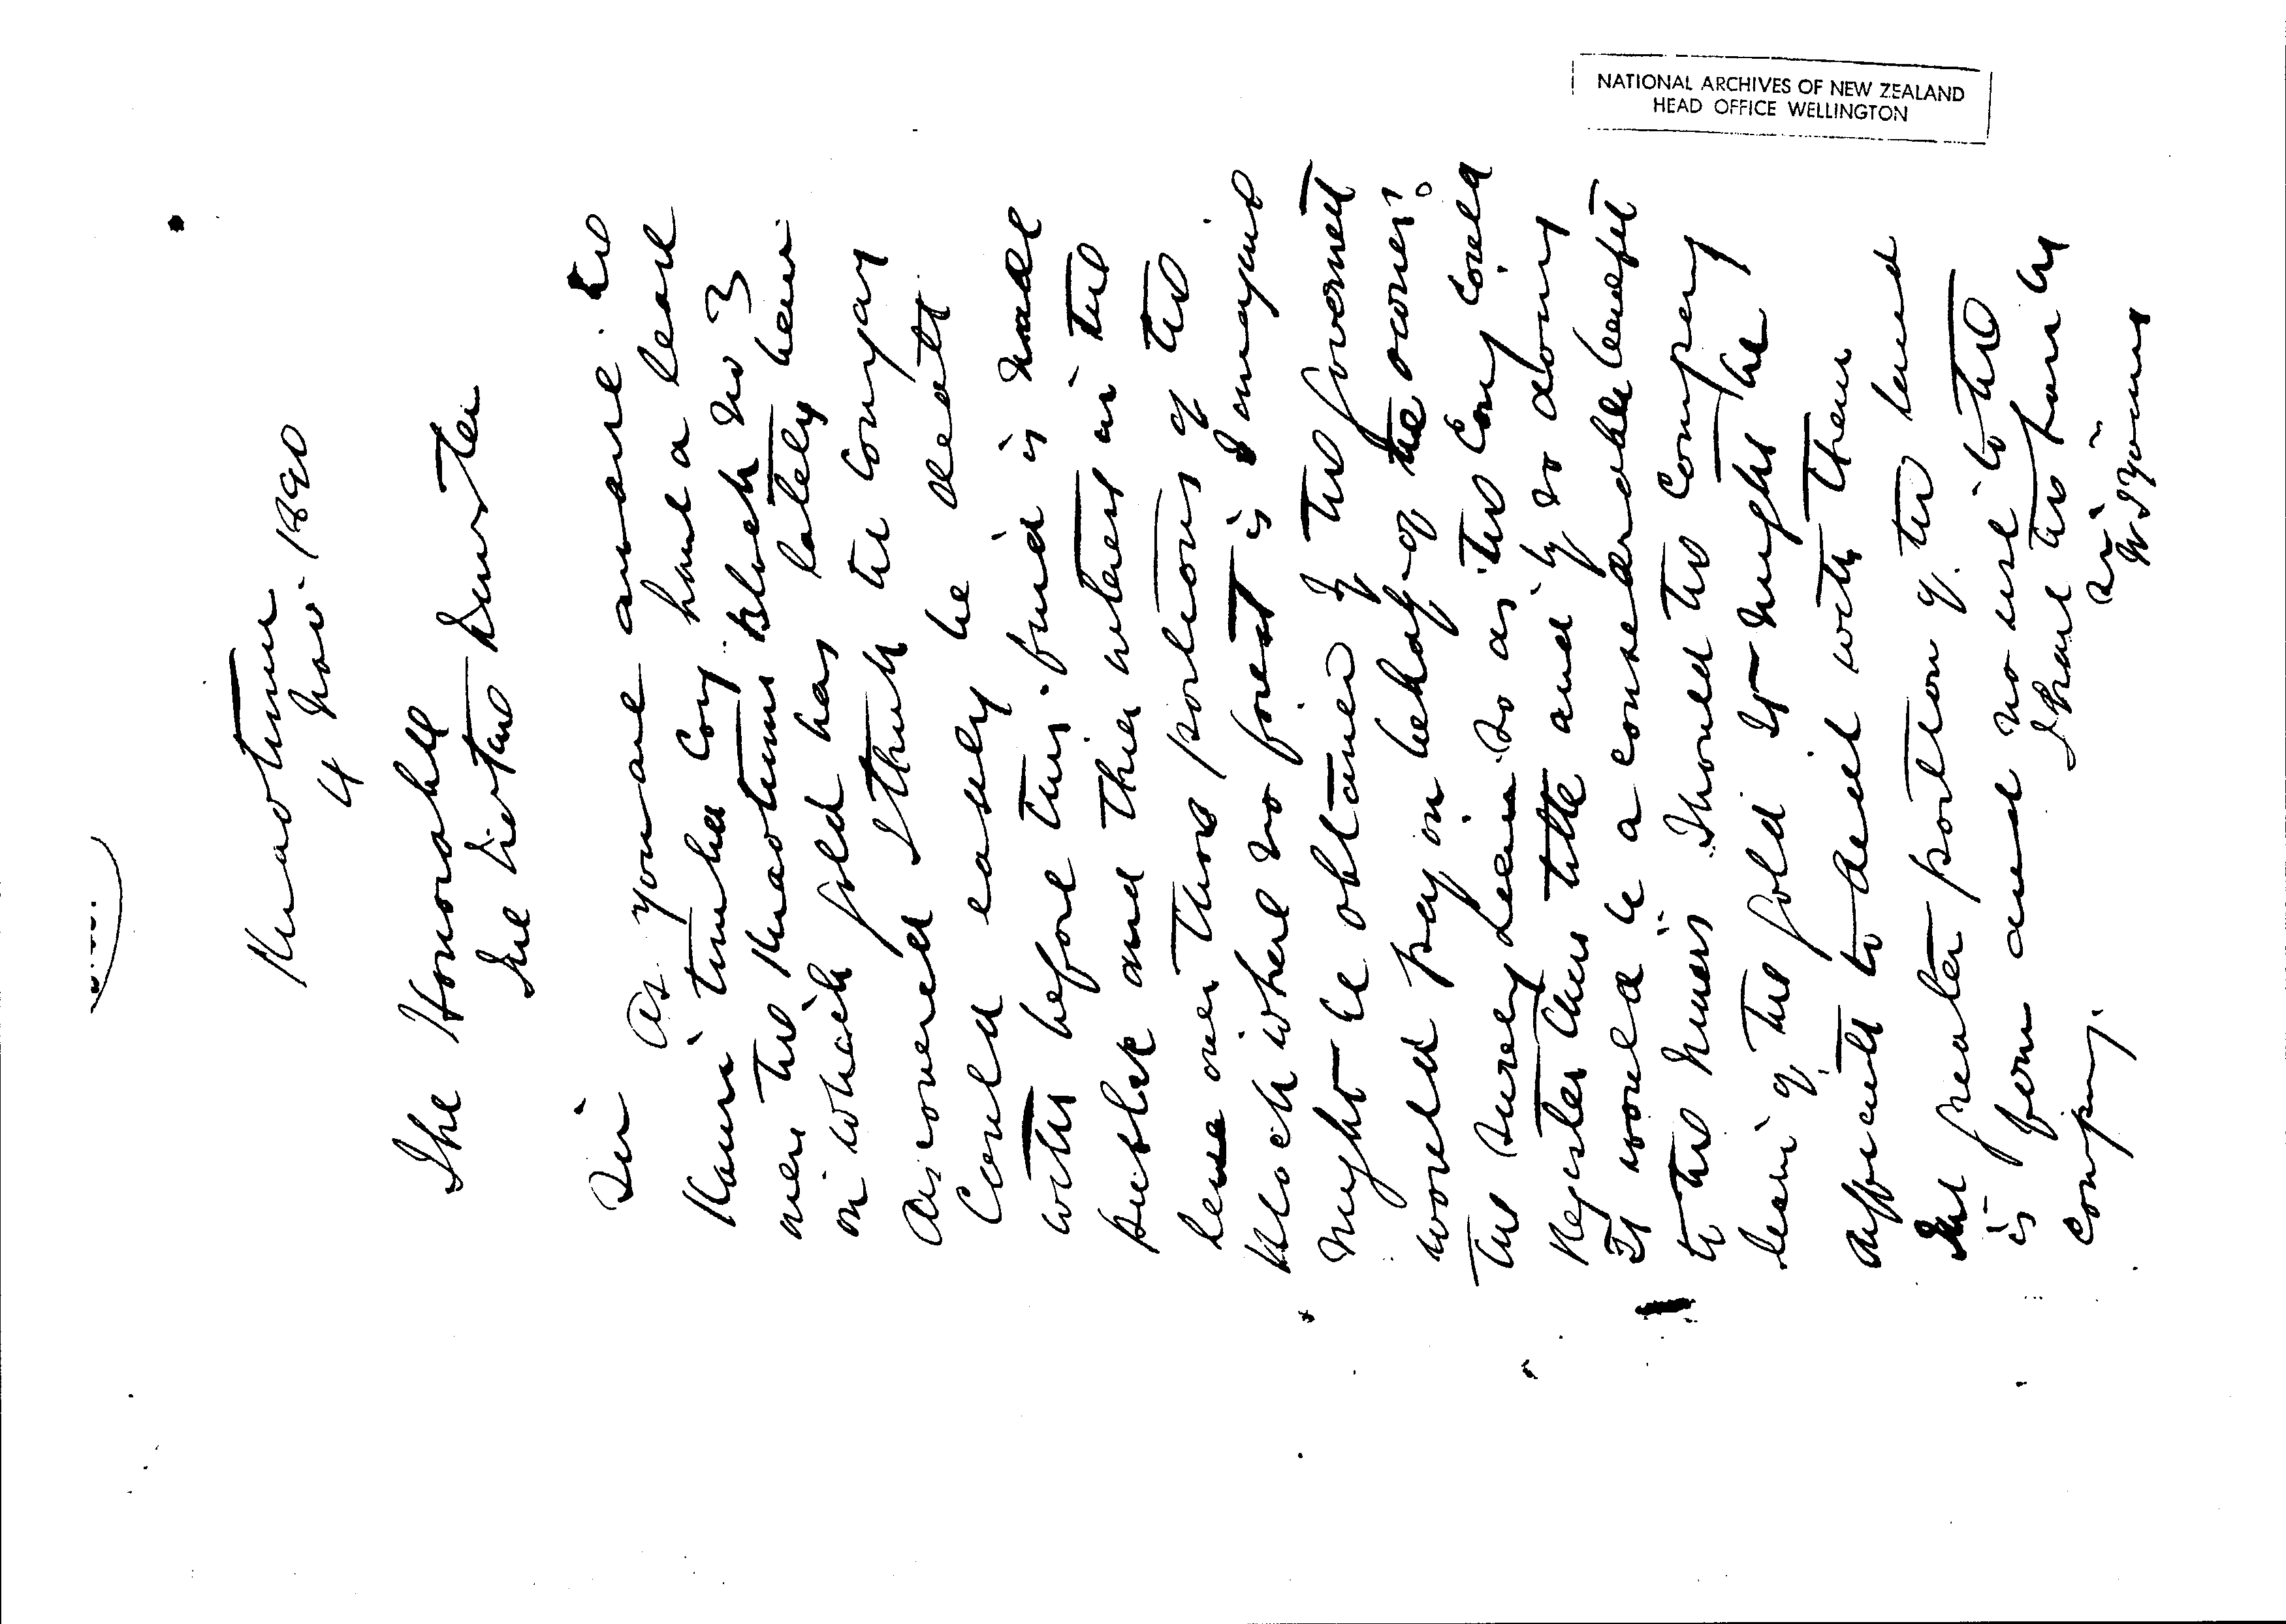 NATIONAL ARCHIVES OF NEW ZEALAND
HEAD OFFICE WELLINGTON
Kuaotunu
4 Nov. 1890
The Honorable
The Native Minister
Sir
As you are aware the
Kauri timber Coy have a lease
over the Kuaotunu Block No 3
on which gold has lately been
discovered I think the Company
Could easily be dealt
with before this find is made
public and their interest in the
lease over those portions of the
Block where no forest is I imagine
might be obtained If the government
would pay on behalf of the owners
the survey lien so as the Coy could
Register their title and by so doing
It would be a considerable benefit
to the Miners Should the Company
learn of the gold It might be
difficult to deal with them
The greater portion of the land
is fern and no use to the
Company.
I have the honor